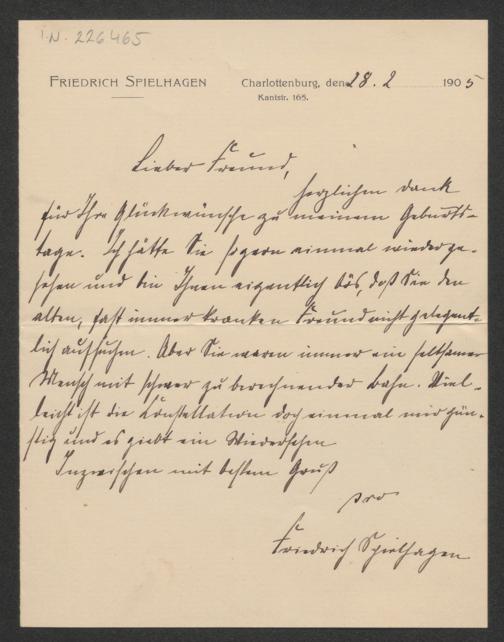 I.N. 226465
FRIEDRICH SPIELHAGEN
Charlottenburg, den 28. 2 1905
Kantstr. 165.
Lieber Freund,
herzlichen Dank
für Ihre Glückwünsche zu meinem Geburts-
tage. Ich hätte Sie so gern einmal wiederge-
sehen und bin Ihnen eigentlich bös, daß Sie den
alten, fast immer kranken Freund nicht gelegent-
lich aufsuchen. Aber Sie waren immer ein seltsamer
Mensch mit schwer zu berechnender Bahn. Viel-
leicht ist die Konstellation doch einmal mir gün-
stig und es giebt ein Wiedersehen
Inzwischen mit bestem Gruß
Friedrich Spielhagen